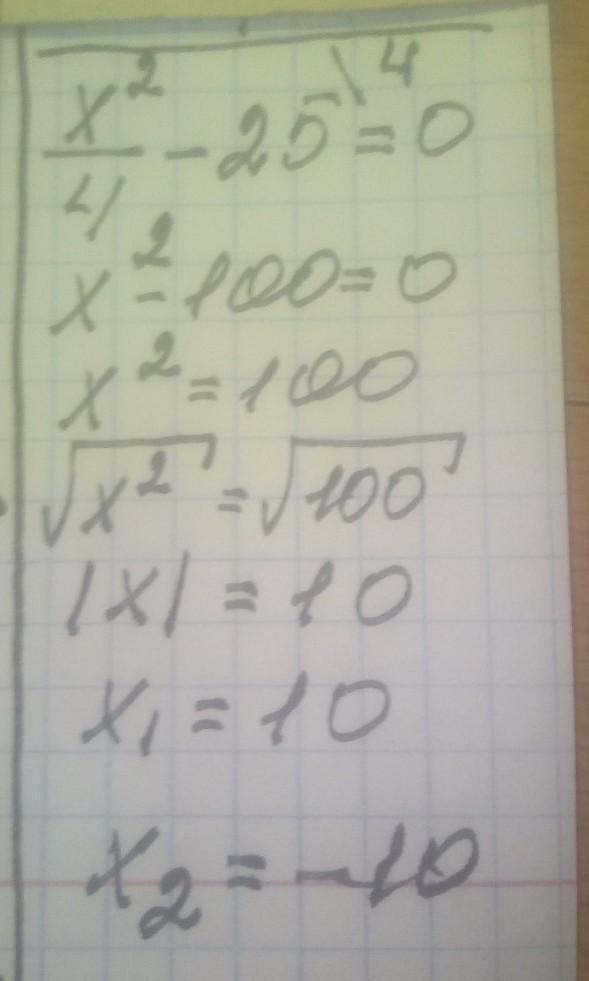 x²/4 - 25\4 = 0
x² - 100 = 0
x² = 100
√x² = √100
|x| = 10
x₁ = 10
x₂ = -10